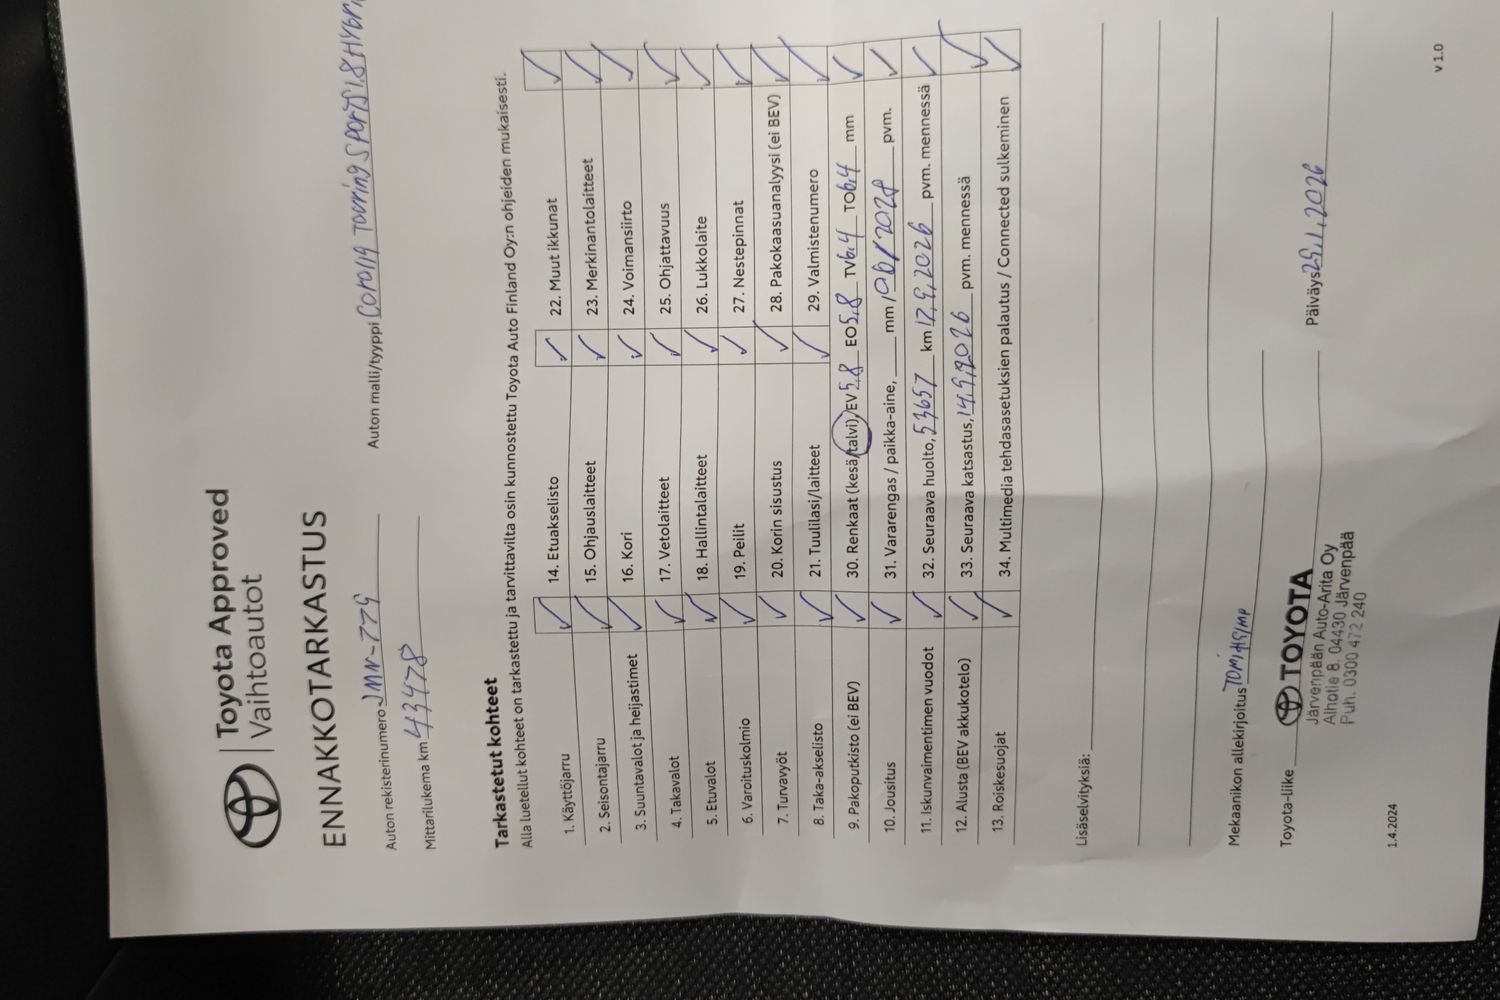 Toyota Approved
Vaihtoautot
ENNAKKOTARKASTUS
Auton rekisterinumero JMN-779 Auton malli/tyyppi Corolla Touring Sports 1.8 Hybri
Mittarilukema km 43478
Tarkastetut kohteet
Alla luetellut kohteet on tarkastettu ja tarvittavilta osin kunnostettu Toyota Auto Finland Oy:n ohjeiden mukaisesti.
1. Käyttöjarru ✓
2. Seisontajarru ✓
3. Suuntavalot ja heijastimet ✓
4. Takavalot ✓
5. Etuvalot ✓
6. Varoituskolmio ✓
7. Turvavyöt ✓
8. Taka-akselisto ✓
9. Pakoputkisto (ei BEV) ✓
10. Jousitus ✓
11. Iskunvaimentimen vuodot ✓
12. Alusta (BEV akkukotelo) ✓
13. Roiskesuojat ✓
14. Etuakselisto ✓
15. Ohjauslaitteet ✓
16. Kori ✓
17. Vetolaitteet ✓
18. Hallintalaitteet ✓
19. Peilit ✓
20. Korin sisustus ✓
21. Tuulilasi/laitteet ✓
22. Muut ikkunat ✓
23. Merkinantolaitteet ✓
24. Voimansiirto ✓
25. Ohjattavuus ✓
26. Lukkolaite ✓
27. Nestepinnat ✓
28. Pakokaasuanalyysi (ei BEV) ✓
29. Valmistenumero ✓
30. Renkaat (kesä/talvi), EV 5,8 EO 5,8 TV 6,4 TO 6,4 mm ✓
31. Vararengas / paikka-aine, mm / 06/2028 pvm. ✓
32. Seuraava huolto, 53657 km 12,9,2026 pvm. mennessä ✓
33. Seuraava katsastus, 14,9,2026 pvm. mennessä ✓
34. Multimedia tehdasasetuksien palautus / Connected sulkeminen ✓
Lisäselvityksiä:
Mekaanikon allekirjoitus
Toyota-liike TOYOTA Päiväys 25,1,2026
Järvenpään Auto-Arita Oy
Alhotie 8, 04430 Järvenpää
Puh. 0300 472 240
1.4.2024 v 1.0